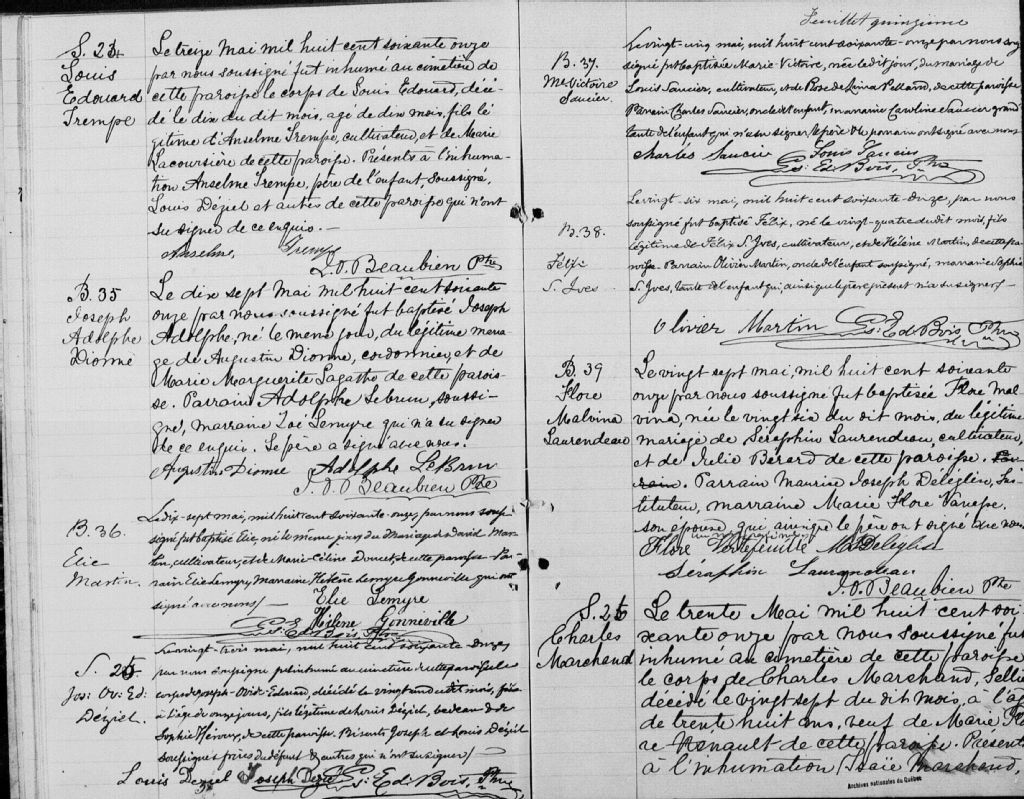 S. 24
Louis
Edouard
Trempe
Le treize Mai mil huit cent soixante onze
par nous soussigné fut inhumé au cimetière de
cette paroisse le corps de Louis Edouard, décé-
dé le dix du dit mois, age de dix mois, fils lé
gitime d'Anselme Trempe, cultivateur, et de Marie
Lacoursière de cette paroisse. Présents à l'inhuma-
tion Anselme Trempe, père de l'enfant, soussigné,
Louis Déziel et autres de cette paroisse qui n'ont
su signer de ce enquis.
Anselme Trempe
L. O. Beaubien Ptre
B. 35
Joseph
Adolphe
Dionne
Le dix sept Mai mil huit cent soixante
onze par nous soussigné fut baptisé Joseph
Adolphe, né le meme jour, du légitime maria
ge de Augustin Dionne, cordonnier, et de
Marie Marguerite Lagathe de cette parois-
se. Parrain Adolphe Lebrun, soussi-
gné, marraine Zoé Lemyre qui n'a su signer
de ce enquis. Le père a signé avec nous.
Augustin Dionne Adolphe LeBrun
J. O. Beaubien Ptre
B. 36.
Elie
Martin.
Le dix-sept mai, mil huit cent soixante-onze, par nous sous-
signé fut baptisé Elie, né le même jour, du mariage de David Mar-
tin, cultivateur, et de Marie Céline Doucet, de cette paroisse. Par-
rain Elie Lemyre, Marraine Hélène Lemyre Gonneville qui ont
signé avec nous
Elie Lemyre
Hilene Gonneville
Gs: Ed Bois, Ptre
S. 25
Jos: Ov: Ed:
Déziel.
Le vingt-trois mai, mil huit cent soixante-onze,
par nous soussigné fut inhumé au cimetière de cette paroisse le
corps de Joseph-Ovide-Edouard, décédé le vingt-un du dit mois,
à l'âge de onze jours, fils légitime de Louis Déziel, bedeau & de
Sophie Héroux, de cette paroisse. Présents Joseph et Louis Déziel
soussignés frères du défunt & autres qui n'ont su signer
Louis Deziel Joseph Deziel Gs: Ed: Bois, Ptre
Feuillet quinzième
B. 37.
Me. Victoire
Saucier.
Le vingt-cinq mai, mil huit cent soixante-onze par nous sous-
signé fut baptisée Marie-Victoire, née le dit jour, du mariage de
Louis Saucier, cultivateur, et de Rose de Lima Pelland, de cette paroisse
Parrain Charles Saucier, oncle de l'enfant, marraine Caroline Saucier grand
tante de l'enfant qui n'a su signer. Le père & le parrain ont signé avec nous
Charles Saucier Louis Saucier
Gs: Ed Bois, Ptre
B. 38.
Félix
St. Yves
Le vingt-six mai, mil huit cent soixante-onze, par nous
soussigné fut baptisé Félix, né le vingt-quatre du dit mois, fils
légitime de Félix St. Yves, cultivateur, et de Hélène Martin, de cette pa-
roisse. Parrain Olivier Martin, oncle de l'enfant soussigné, marraine Sophie
St. Yves, tante de l'enfant qui, ainsi que le père présent n'a su signer
Olivier Martin Gs: Ed Bois, Ptre
B. 39
Flore
Malvina
Laurendeau
Le vingt sept mai, mil huit cent soixante
onze par nous soussigné fut baptisée Flore Mal
vina, née le vingt six du dit mois, du légitime
mariage de Séraphin Laurendeau, cultivateur,
et de Julie Berard de cette paroisse. Par
rain. Parrain Maurice Joseph Deléglin, Ins-
tituteur, marraine Marie Flore Vanesse,
son épouse, qui ainsi que le père ont signé avec nous
Flore Portefeuille M. Deléglin
Séraphin Laurendeau
J. O. Beaubien Ptre
S. 26
Charles
Marchand
Le trente Mai mil huit cent soi
xante onze par nous soussigné fut
inhumé au cimetière de cette paroisse
le corps de Charles Marchand, Sellier
décédé le vingt sept du dit mois, à l'âge
de trente huit ans, veuf de Marie
Renault de cette paroisse. Présents
à l'inhumation Isaïe Marchand,
Archives nationales du Québec